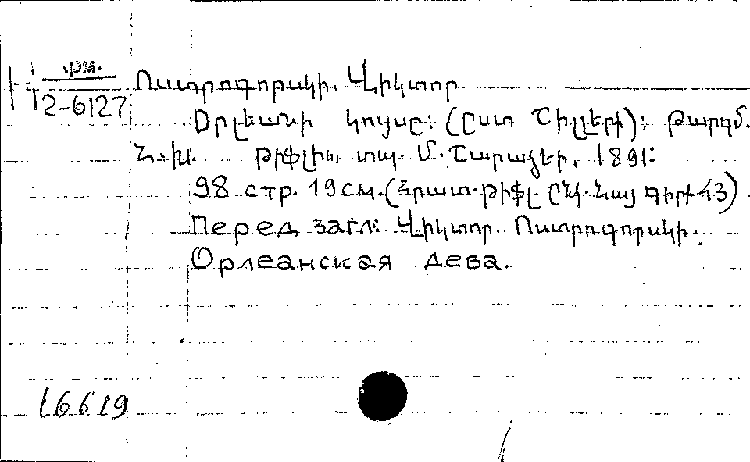 արմ.
Ի 2-6127
Ոստրոգորսկի. Վիկտոր
Օրլեանի կոյսը: (Ըստ Շիլլերի): Թարգմ.
Ն. Խ. Թիֆլիս, տպ. Մ. Շարաձեի, 1891:
98 стр. 19 см. (Հրատ. Թիֆլ. Ընկ. Հայ գիրք. 43)
Перед загл: Վիկտոր Ոստրոգորսկի.
Орлеанская дева.
16619